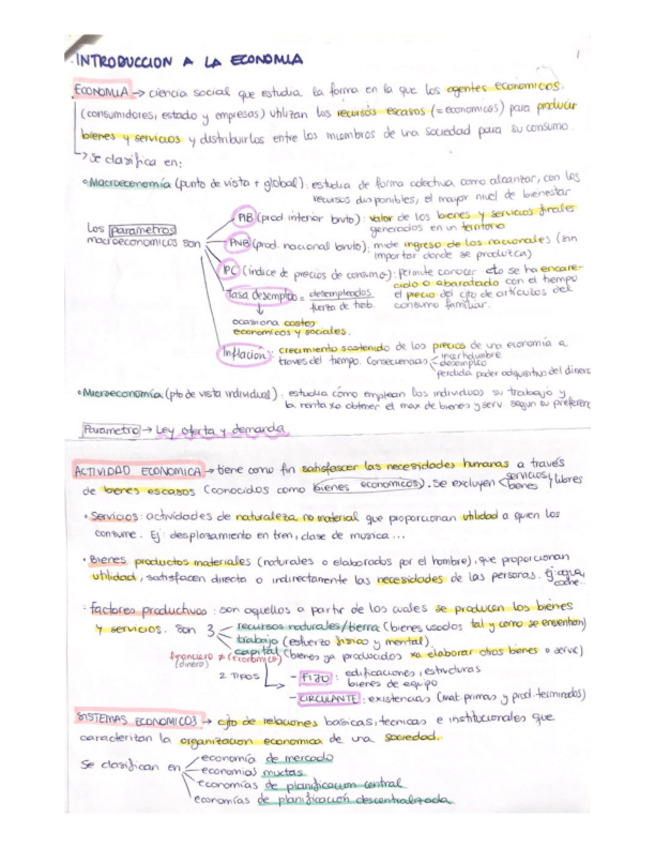 INTRODUCCION A LA ECONOMIA
1
ECONOMIA → ciencia social que estudia la forma en la que los agentes economicos.
(consumidores, estado y empresas) utilizan los recursos escasos (= economicos) para producir
bienes y servicios y distribuirlos entre los miembros de una sociedad para su consumo.
↳ Se clasifica en:
• Macroeconomía (punto de vista + global): estudia de forma colectiva como alcanzar, con los
recursos disponibles, el mayor nivel de bienestar
Los parametros
macroeconomicos son
PIB (prod interior bruto): valor de los bienes y servicios finales
generados en un territorio
PNB (prod. nacional bruto): mide ingreso de los nacionales (sin
importar donde se produzca)
IPC (indice de precios de consumo): permite conocer cto se ha encare-
cido o abaratado con el tiempo
el precio del cjto de artículos del
consumo familiar.
Tasa desempleo = desempleados
fuerza de trab.
ocasiona costes
economicos y sociales.
Inflación: crecimiento sostenido de los precios de una economía a
traves del tiempo. Consecuencias
incertidumbre
desempleo
perdida poder adquisitivo del dinero
• Microeconomía (pto de vista individual): estudia cómo emplean los individuos su trabajo y
la renta xa obtener el max de bienes y serv. segun su preferen
Parametro → Ley oferta y demanda
ACTIVIDAD ECONOMICA → tiene como fin satisfascer las necesidades humanas a través
de bienes escasos (conocidos como bienes economicos). Se excluyen
servicios
bienes
libres
• Servicios: actividades de naturaleza no material que proporcionan utilidad a quien los
consume. Ej: desplazamiento en tren, clase de musica...
• Bienes productos materiales (naturales o elaborados por el hombre), que proporcionan
utilidad, satisfacen directa o indirectamente las necesidades de las personas. Ej: agua,
coche..
• factores productivos: son aquellos a partir de los cuales se producen los bienes
y servicios. son 3
recursos naturales/tierra (bienes usados tal y como se encuentran)
trabajo (esfuerzo fisico y mental)
capital (bienes ya producidos xa elaborar otros bienes o serv)
financiero ≠ (económico)
(dinero)
2 TIPOS
- FIJO: edificaciones, estructuras
bienes de equipo
- CIRCULANTE: existencias (mat primas y prod. terminados)
SISTEMAS ECONOMICOS → cjto de relaciones basicas, tecnicas e institucionales que
caracterizan la organizacion economica de una sociedad.
Se clasifican en
economía de mercado
economias mixtas
economías de planificacion central
economías de planificación descentralizada